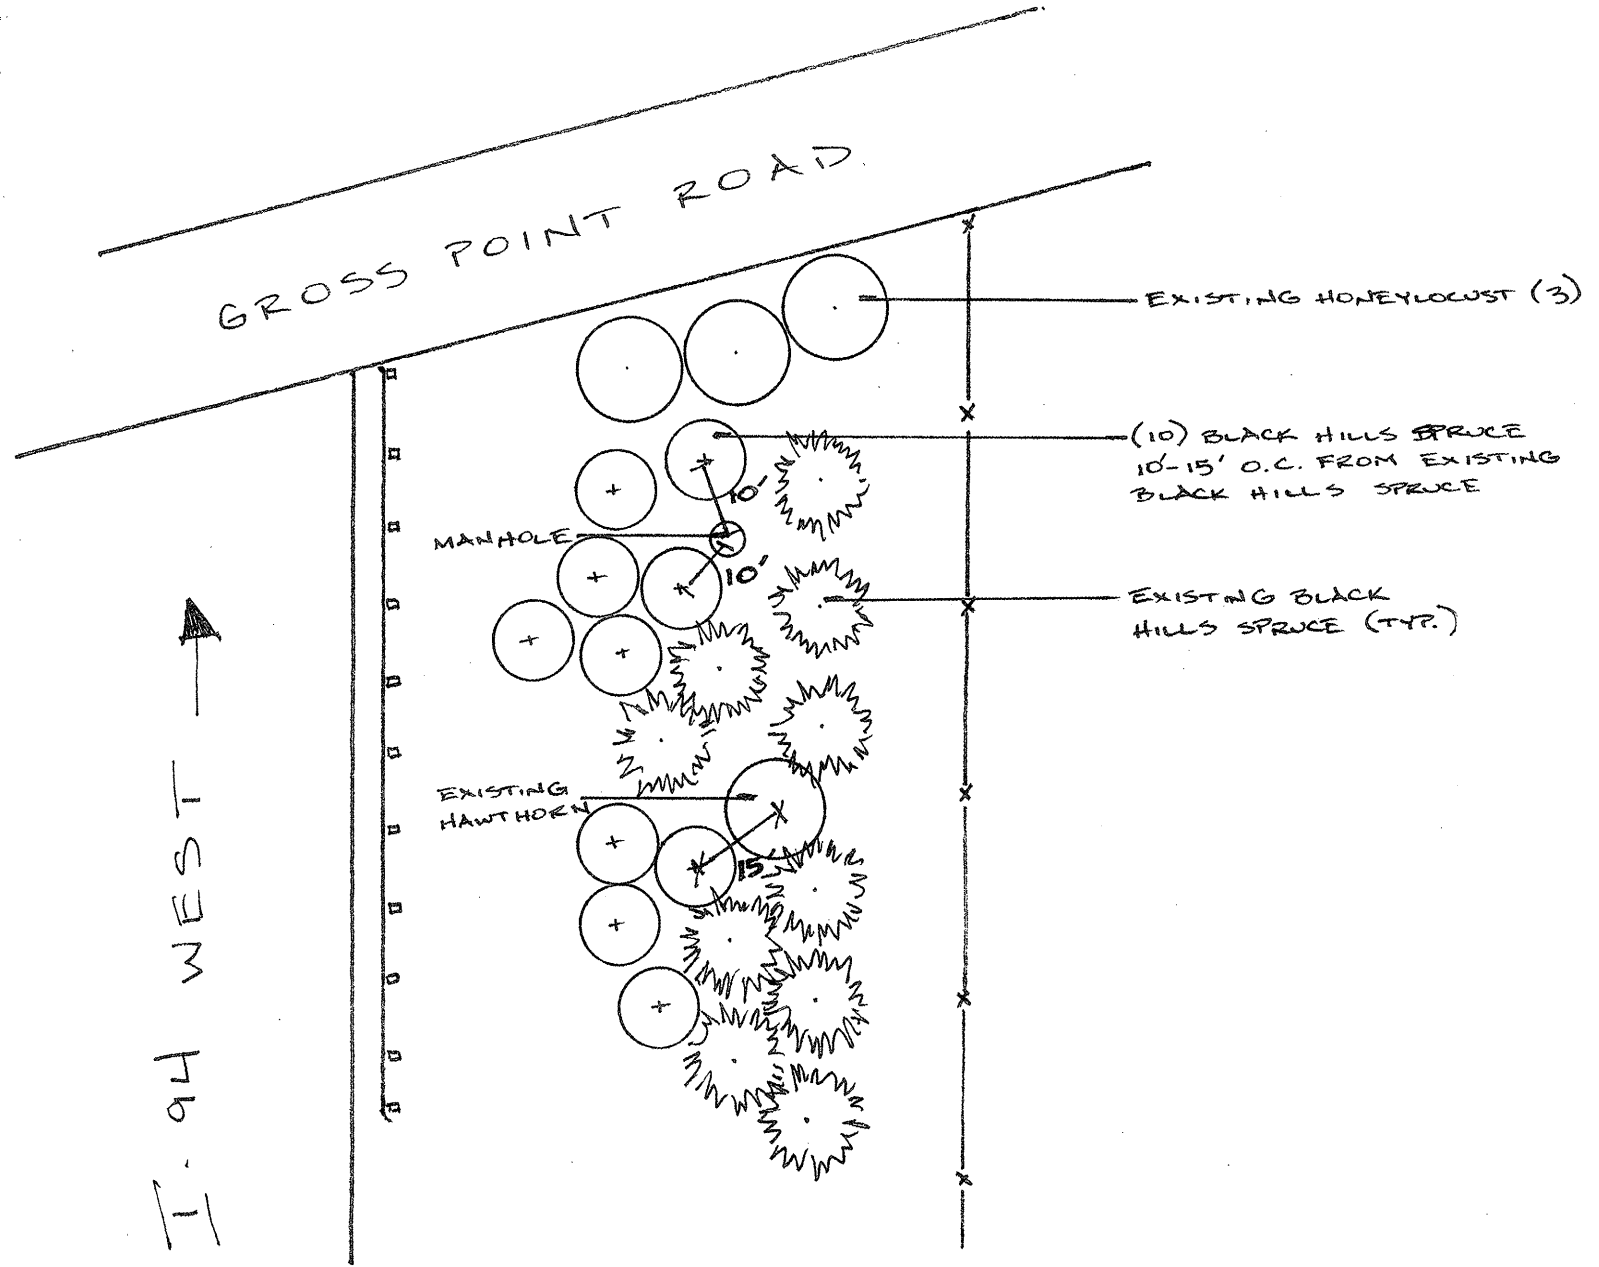 GROSS POINT ROAD
EXISTING HONEYLOCUST (3)
(10) BLACK HILLS SPRUCE
10'-15' O.C. FROM EXISTING
BLACK HILLS SPRUCE
10'
MANHOLE
10'
EXISTING BLACK
HILLS SPRUCE (TYP.)
EXISTING
HAWTHORN
15'
I.94 WEST